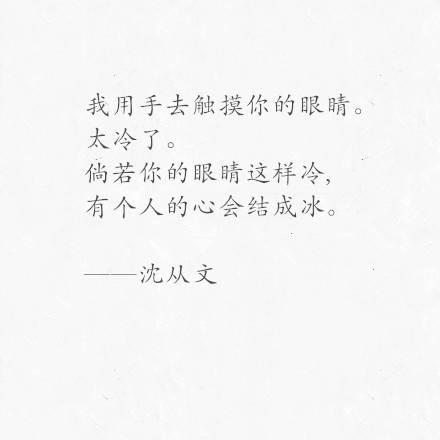 我用手去触摸你的眼睛。
太冷了。
倘若你的眼睛这样冷,
有个人的心会结成冰。
——沈从文